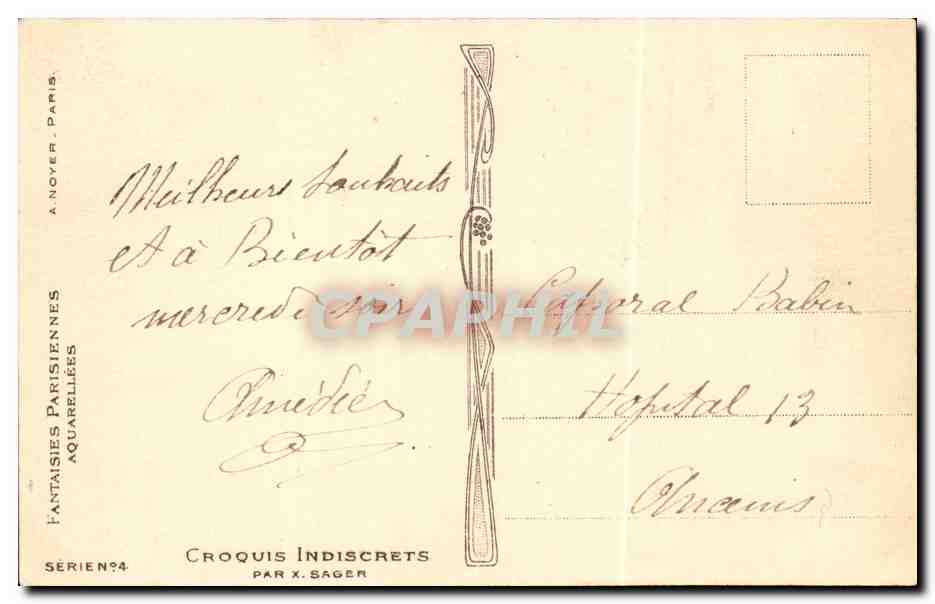 A. NOYER - PARIS.
FANTAISIES PARISIENNES
AQUARELLÉES
SÉRIE Nº4
CROQUIS INDISCRETS
PAR X. SAGER
Meilheurs Souhaits
et à Bientôt
mercredi soir
Amédée
CPAPHIL
Caporal Babin
Hopital 13
Ancenis